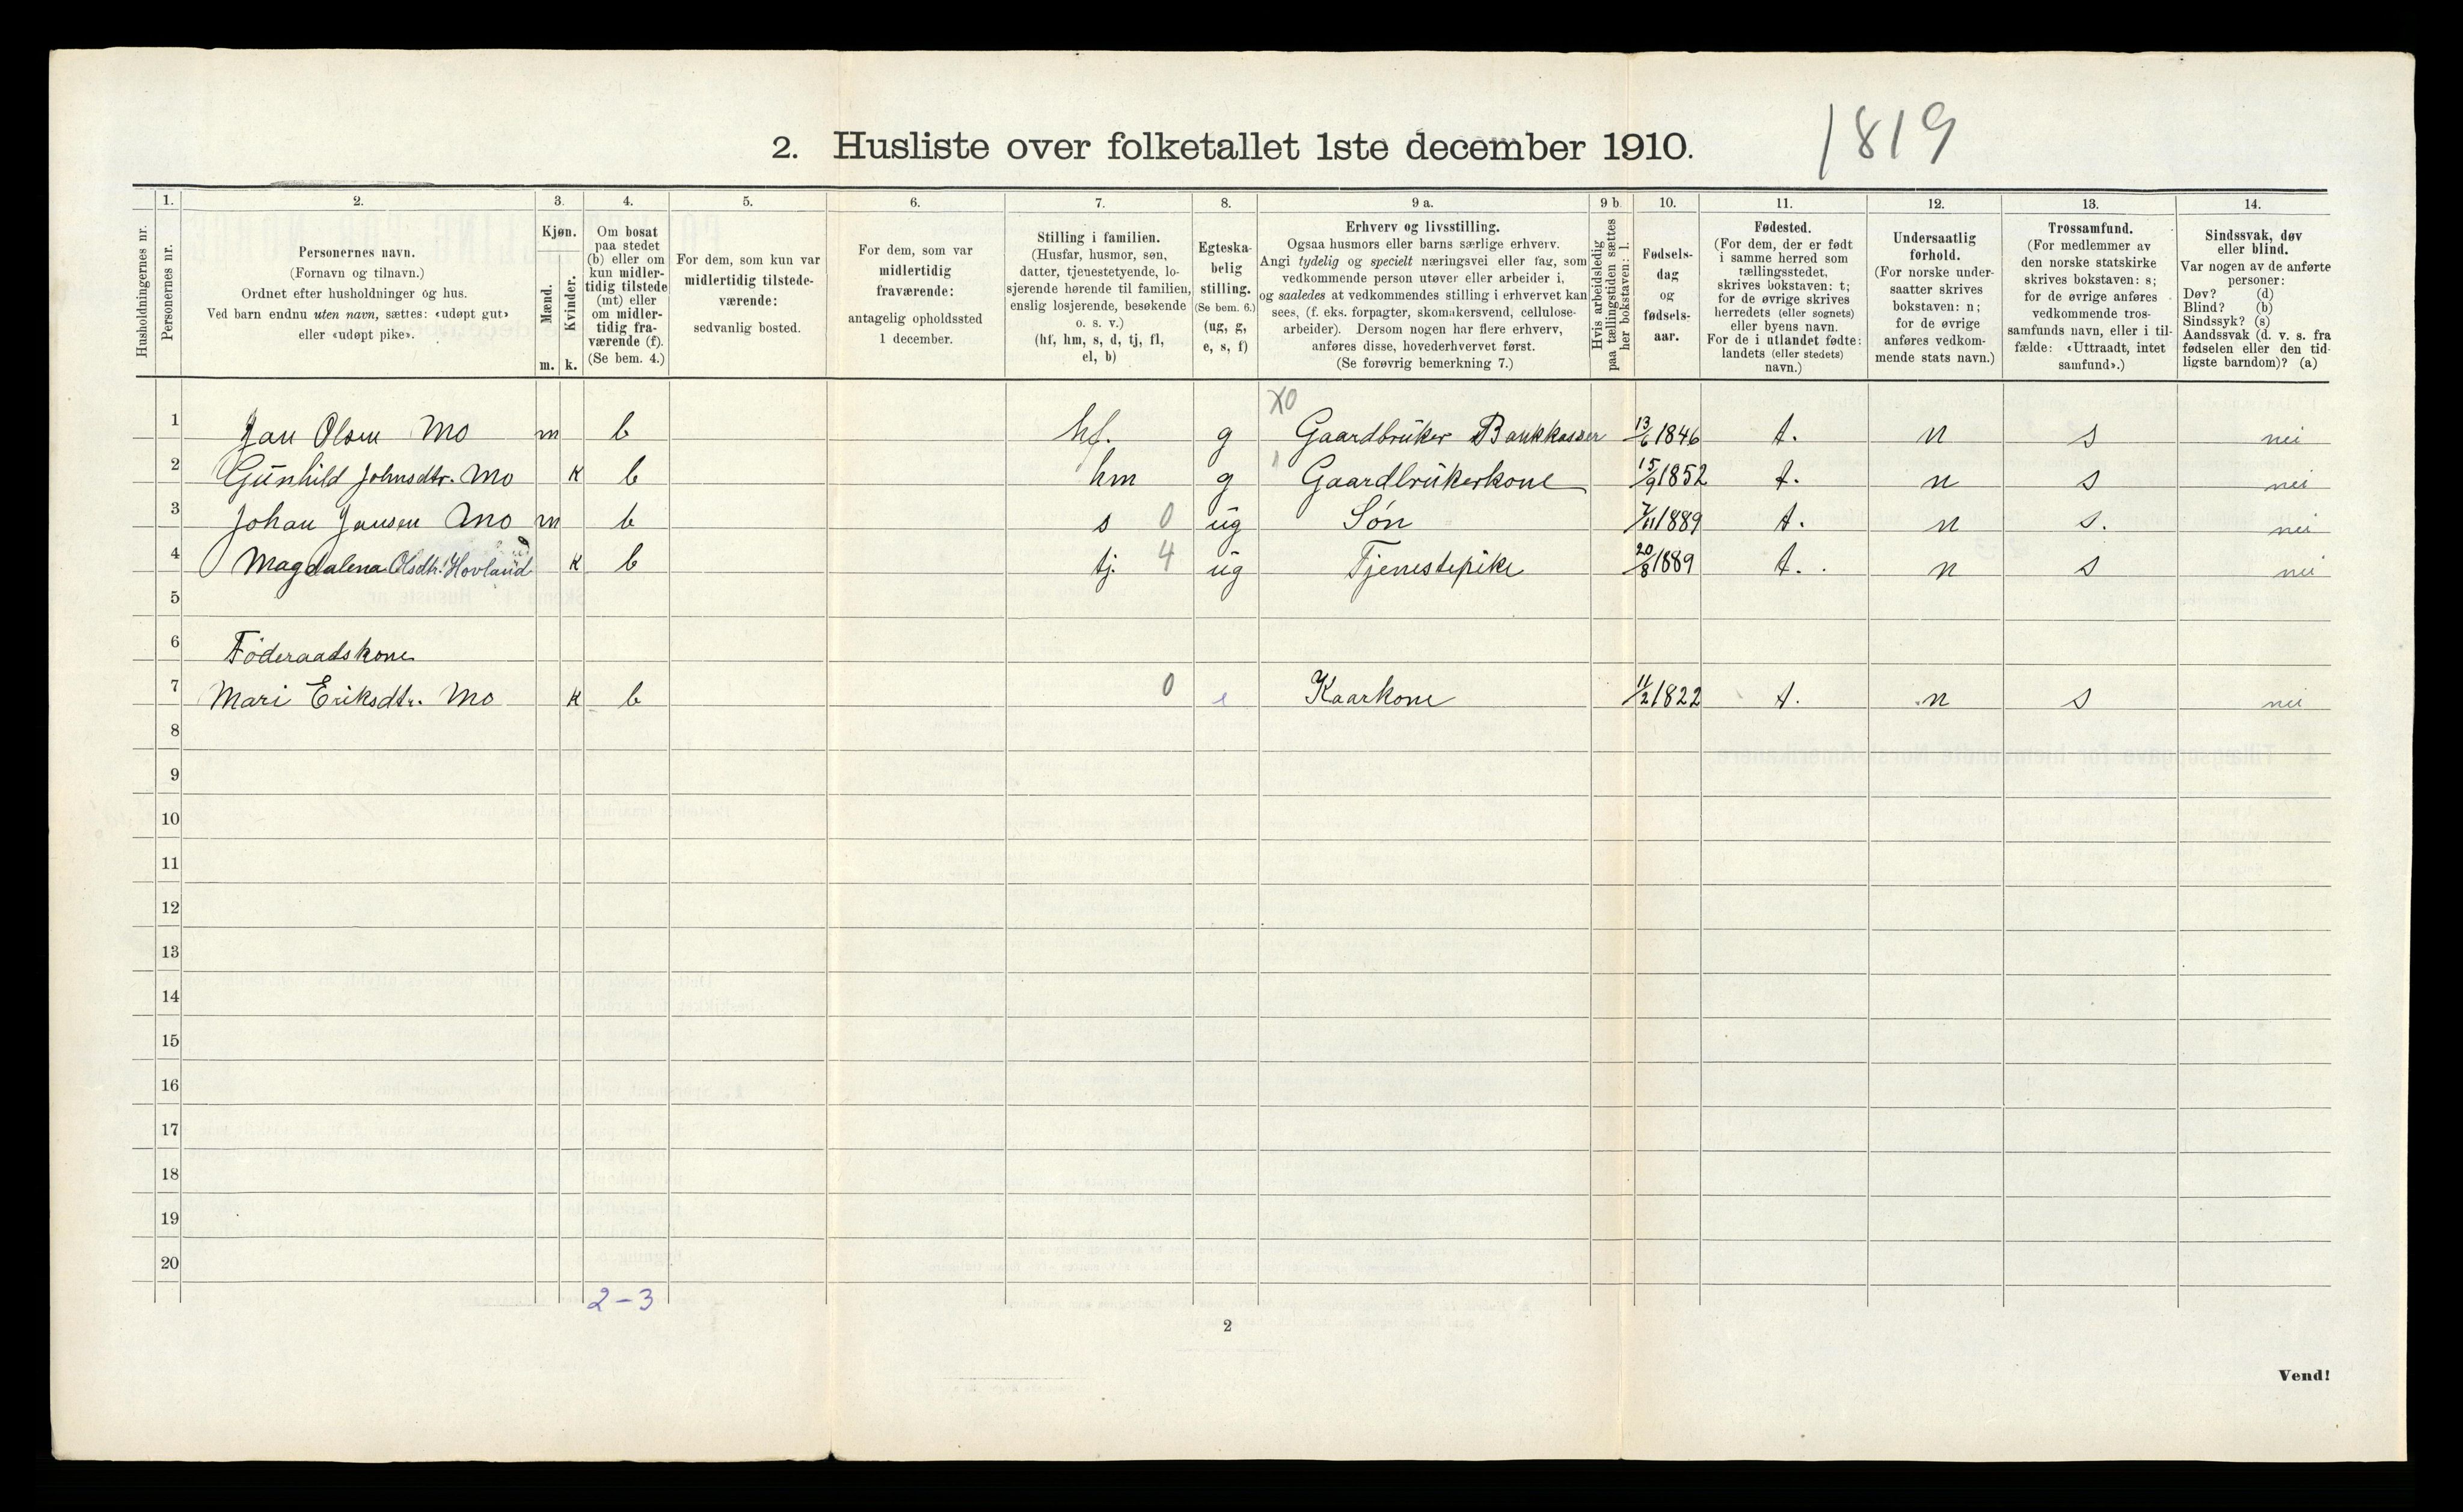 2. Husliste over folketallet 1ste december 1910.
1819
Husholdningernes nr.
1.
Personernes nr.
2.
Personernes navn.
(Fornavn og tilnavn.)
Ordnet efter husholdninger og hus.
Ved barn endnu uten navn, sættes: «udøpt gut»
eller «udøpt pike».
3.
Kjøn.
Mænd.
Kvinder.
m. k.
4.
Om bosat
paa stedet
(b) eller om
kun midler-
tidig tilstede
(mt) eller
om midler-
tidig fra-
værende (f).
(Se bem. 4.)
5.
For dem, som kun var
midlertidig tilstede-
værende:
sedvanlig bosted.
6.
For dem, som var
midlertidig
fraværende:
antagelig opholdssted
1 december.
7.
Stilling i familien.
(Husfar, husmor, søn,
datter, tjenestetyende, lo-
sjerende hørende til familien,
enslig losjerende, besøkende
o. s. v.)
(hf, hm, s, d, tj, fl,
el, b)
8.
Egteska-
belig
stilling.
(Se bem. 6.)
(ug, g,
e, s, f)
9 a.
Erhverv og livsstilling.
Ogsaa husmors eller barns særlige erhverv.
Angi tydelig og specielt næringsvei eller fag, som
vedkommende person utøver eller arbeider i,
og saaledes at vedkommendes stilling i erhvervet kan
sees, (f. eks. forpagter, skomakersvend, cellulose-
arbeider). Dersom nogen har flere erhverv,
anføres disse, hovederhvervet først.
(Se forøvrig bemerkning 7.)
9 b.
Hvis arbeidsledig
paa tællingstiden sættes
her bokstaven: l.
10.
Fødsels-
dag
og
fødsels-
aar.
11.
Fødested.
(For dem, der er født
i samme herred som
tællingsstedet,
skrives bokstaven: t;
for de øvrige skrives
herredets (eller sognets)
eller byens navn.
For de i utlandet fødte:
landets (eller stedets)
navn.)
12.
Undersaatlig
forhold.
(For norske under-
saatter skrives
bokstaven: n;
for de øvrige
anføres vedkom-
mende stats navn.)
13.
Trossamfund.
(For medlemmer av
den norske statskirke
skrives bokstaven: s;
for de øvrige anføres
vedkommende tros-
samfunds navn, eller i til-
fælde: «Uttraadt, intet
samfund».)
14.
Sindssvak, døv
eller blind.
Var nogen av de anførte
personer:
Døv? (d)
Blind? (b)
Sindssyk? (s)
Aandssvak (d. v. s. fra
fødselen eller den tid-
ligste barndom)? (a)
X0
1 Jan Olsen Mo m b hf. g Gaardbruker Bankkasser 13/6 1846 t. n s nei
2 Gunhild Johnsdtr. Mo k b hm g Gaardbrukerkone 15/9 1852 t. n s nei
3 Johan Jansen Mo m b s 0 ug Søn 7/11 1889 t. n s. nei
4 Magdalena Olsdtr. Hovland k b tj. 4 ug Tjenestepike 20/8 1889 t. n s nei
5
6 Föderaadskone
7 Mari Eriksdtr. Mo k b 0 e Kaarkone 11/2 1822 t. n s nei
8
9
10
11
12
13
14
15
16
17
18
19
20
2-3
2
Vend!